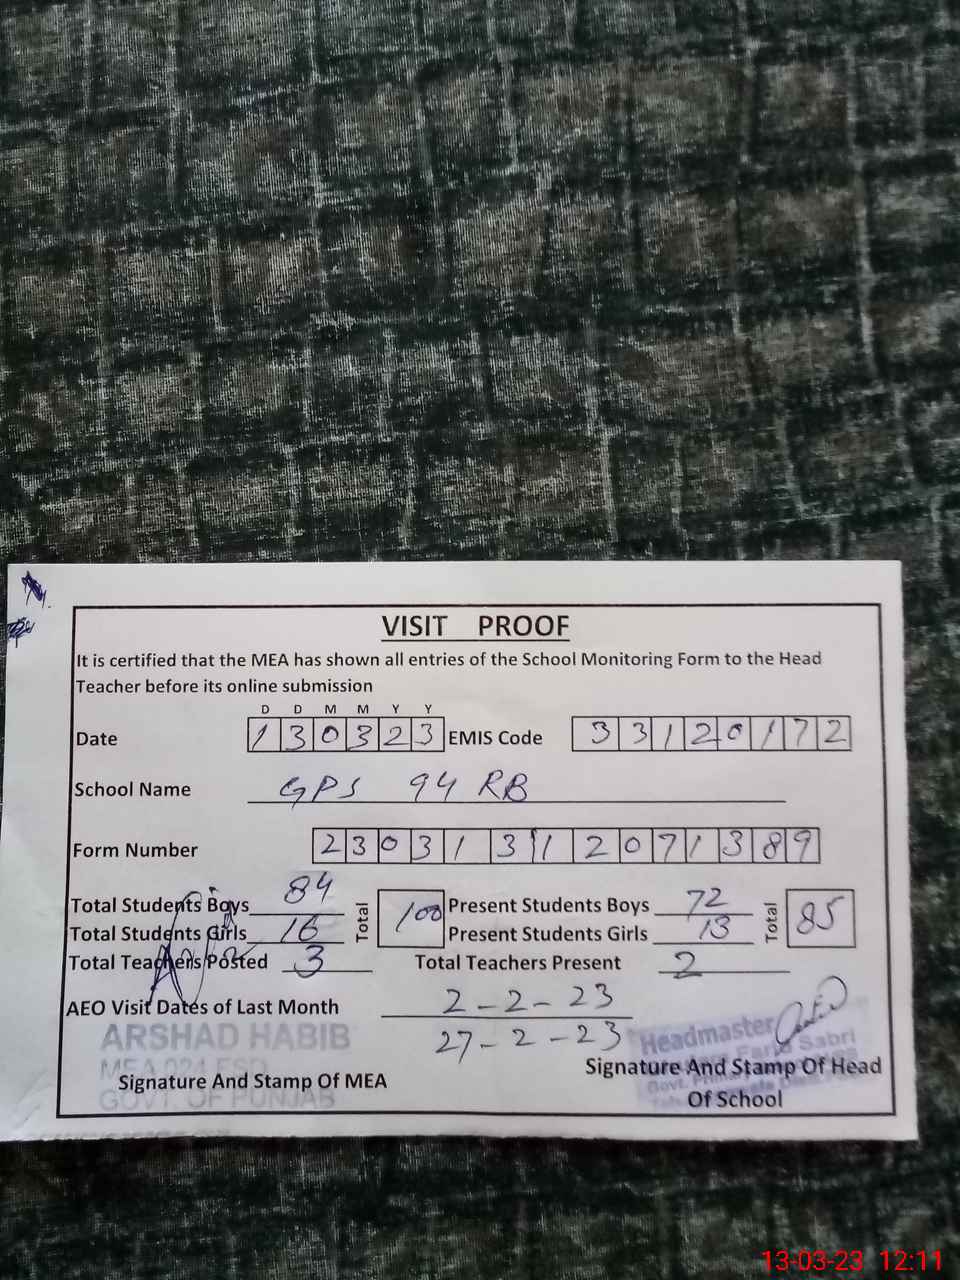 VISIT PROOF
It is certified that the MEA has shown all entries of the School Monitoring Form to the Head
Teacher before its online submission
D D M M Y Y
Date 1 3 0 3 2 3 EMIS Code 3 3 1 2 0 1 7 2
School Name GPS 94 RB
Form Number 2 3 0 3 1 3 1 2 0 7 1 3 8 9
Total Students Boys 84 Total 100 Present Students Boys 72 Total 85
Total Students Girls 16 Present Students Girls 13
Total Teachers Posted 3 Total Teachers Present 2
AEO Visit Dates of Last Month 2-2-23
27-2-23
ARSHAD HABIB
MEA 024 FSD
GOVT. OF PUNJAB
Signature And Stamp Of MEA
Headmaster
Sabri
Govt.
Signature And Stamp Of Head
Of School
13-03-23 12:11